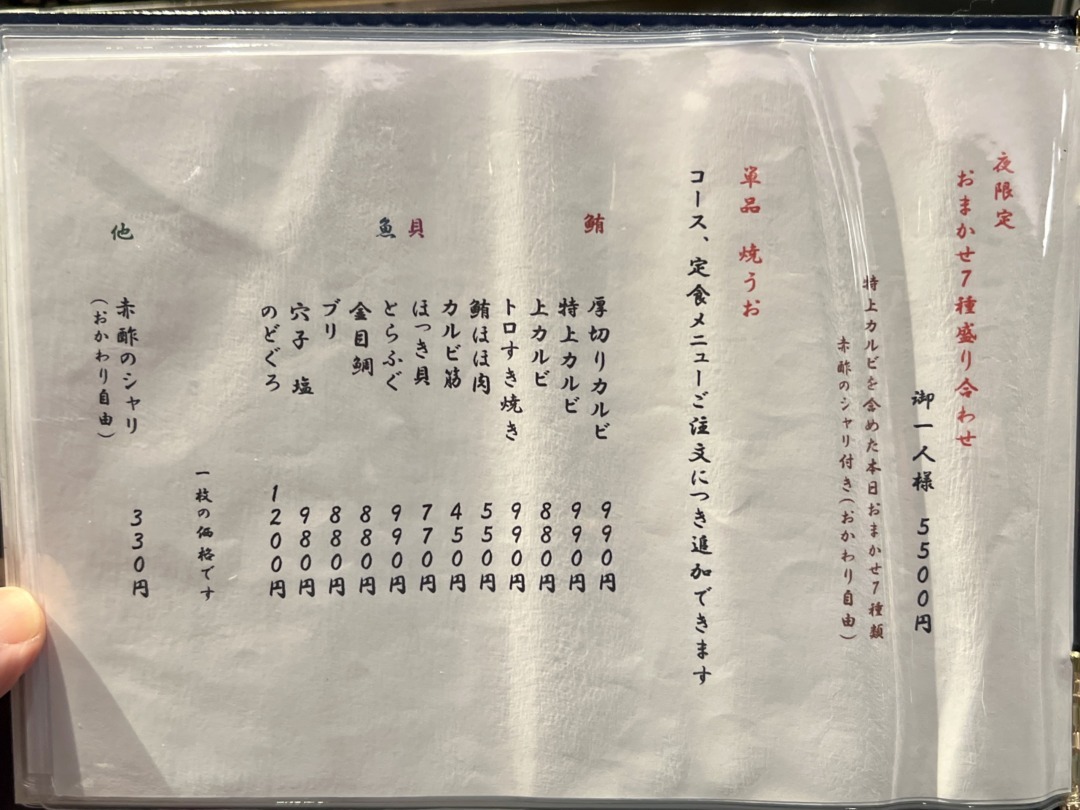 夜限定
おまかせ7種盛り合わせ
御一人様 5500円
特上カルビを含めた本日おまかせ7種類
赤酢のシャリ付き(おかわり自由)
単品 焼うお
コース、定食メニューご注文につき追加できます
鮪
厚切りカルビ 990円
特上カルビ 990円
上カルビ 880円
トロすき焼き 990円
鮪ほほ肉 550円
カルビ筋 450円
貝
ほっき貝 770円
魚
とらふぐ 990円
金目鯛 880円
ブリ 880円
穴子 塩 980円
のどぐろ 1200円
一枚の価格です
他
赤酢のシャリ 330円
(おかわり自由)